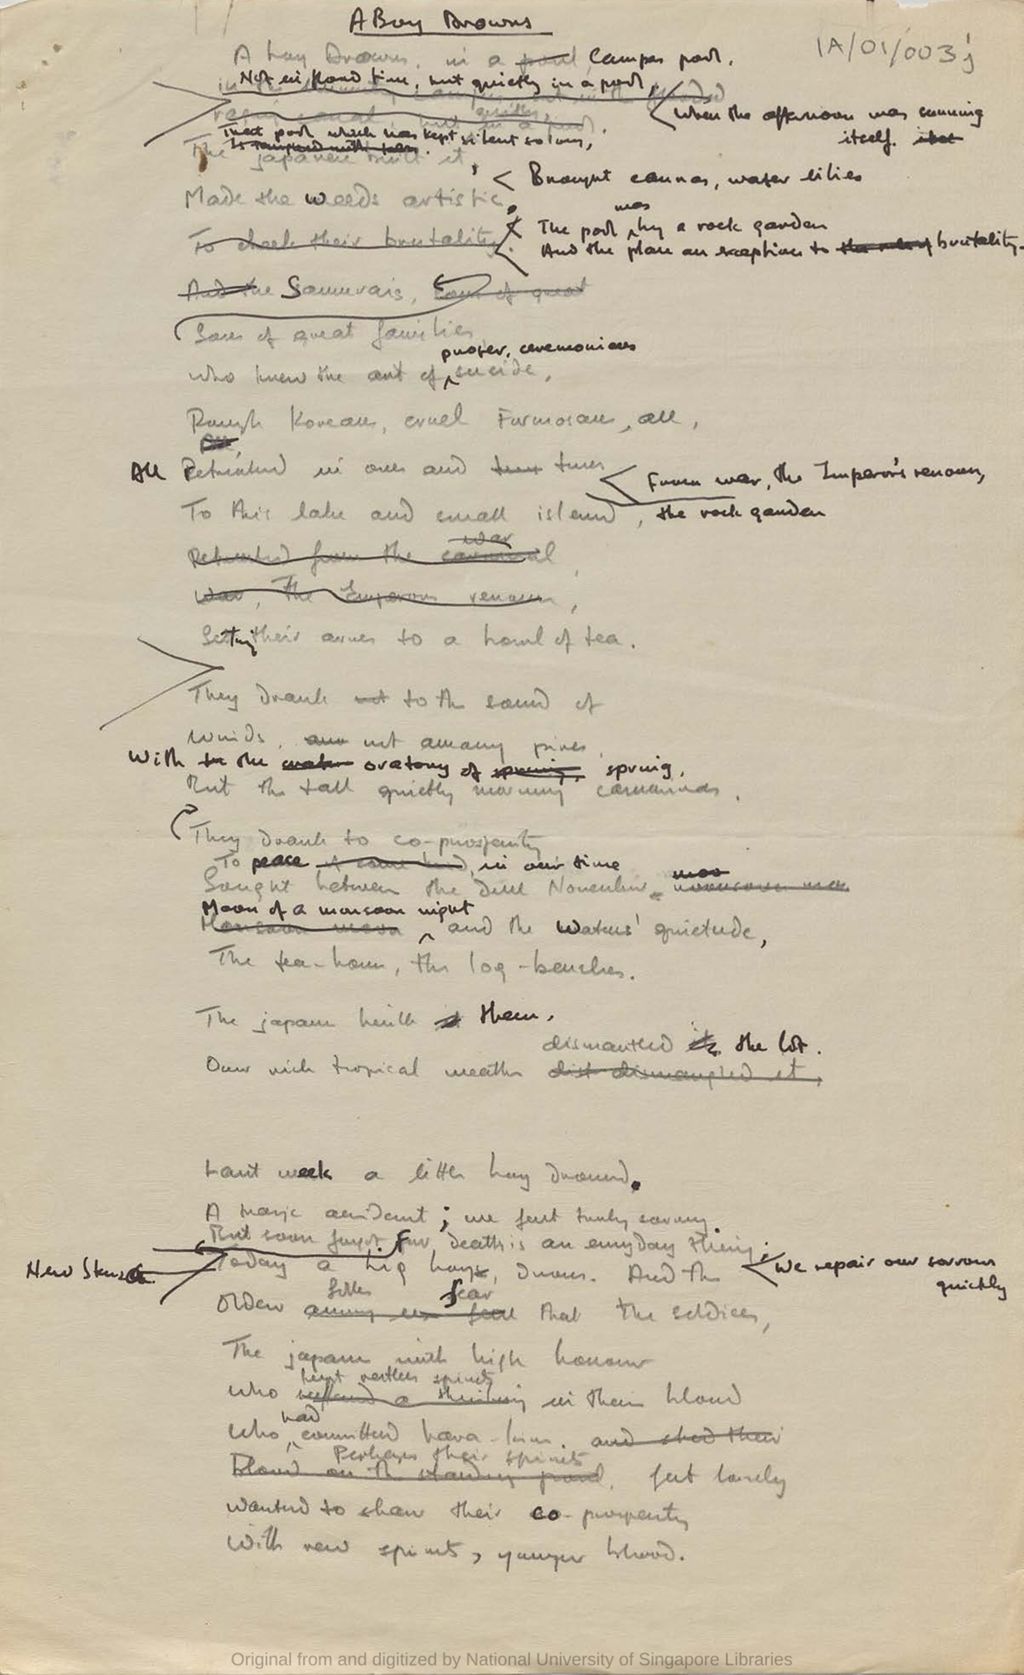 A Boy Drowns
1A/01/003j
A boy Drowns, in a pool Campus pool.
Not in flood time, but quietly in a pool
When the afternoon was sunning
itself.
That pool which was kept silent
The japanese built it,
Brought cannas, water lilies
Made the weeds artistic.
The pool was by a rock garden
To check their brutality.
And the place an exception to brutality.
And the Samurais, Sons of great
Sons of great families
proper, ceremonious
Who knew the art of suicide,
Rough Koreans, cruel Formosans, all,
All Retreated in ones and twos
From war, the Emperor's renown,
To this lake and small island, the rock garden
war
Retreated from the carnival
War, The Emperors renown,
Setting their arms to a bowl of tea.
They drank not to the sound of
Winds, not among pines
With to the water oratory of spring, spring,
But the tall quietly morning casuarinas.
They drank to co-prosperity
To peace in our time
Sought between the Dull November moon
Moon of a monsoon night
Monsoon moon and the waters' quietude,
The tea-house, the log-benches.
The japanese built it them.
dismantled it the lot.
Our rich tropical weather dismantled it,
Last week a little boy drowned.
A tragic accident; we felt truly sorry.
But soon forgot. For death is an everyday thing.
New Stanza
Today a big boy, drowns. And the
We repair our sorrows
quickly
folks fear
Older that the soldiers,
The japanese with high honour
kept restless spirits
Who a in their blood
had
Who committed hara-kiri. and shed their
Perhaps their spirits
Blood on the felt lonely
Wanted to share their co-prosperity
With new spirits, younger blood.
Original from and digitized by National University of Singapore Libraries